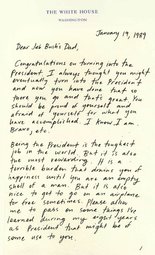 THE WHITE HOUSE
WASHINGTON
January 19, 1989
Dear Jeb Bush's Dad,
Congratulations on turning into the
President. I always thought you might
eventually turn into the President
and now you have done that so
there you go and that's great. You
should be proud of yourself and
afraid of yourself for what you
have accomplished. I know I am.
Bravo, etc.
Being the President is the toughest
job in the world. But it is also
the most rewarding. It is a
terrible burden that drains you of
happiness until you are an empty
shell of a man. But it is also
nice to get to go on an airplane
for free sometimes. Please allow
me to pass on some things I've
learned during my eight years
as President that might be of
some use to you.